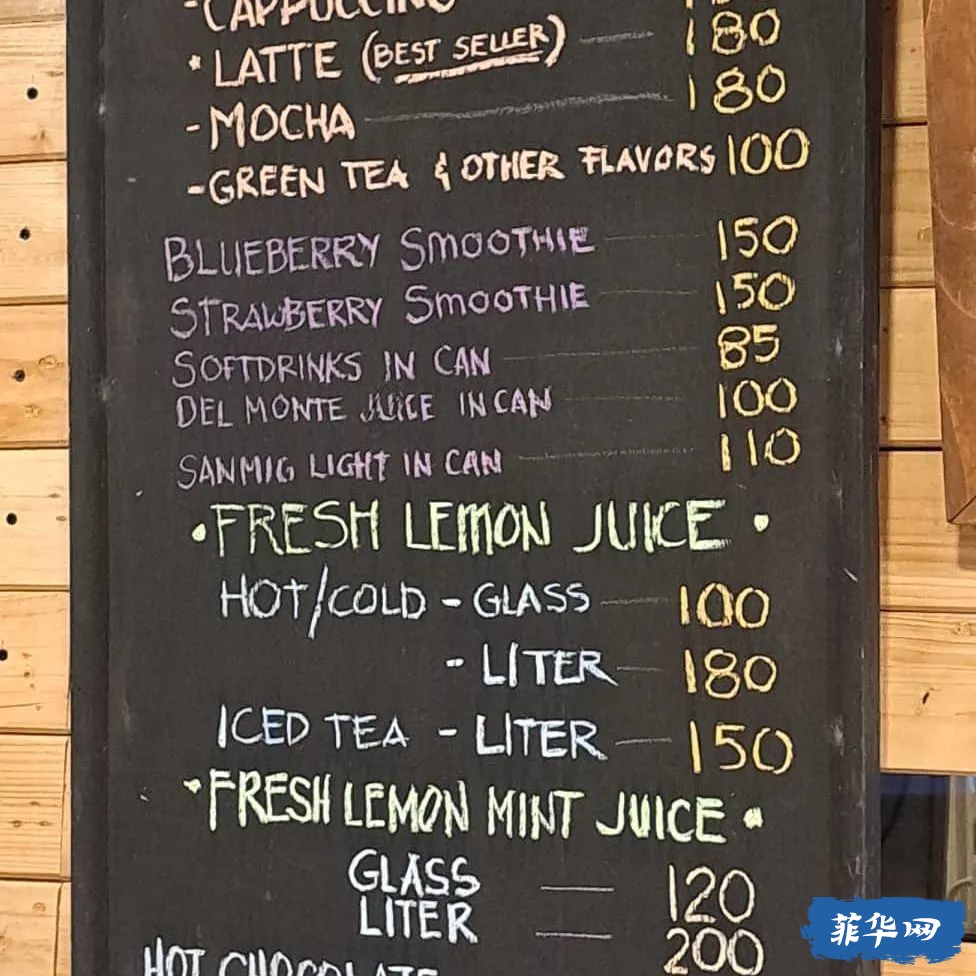 -CAPPUCCINO
*LATTE (BEST SELLER) 180
-MOCHA 180
-GREEN TEA & OTHER FLAVORS 100
BLUEBERRY SMOOTHIE 150
STRAWBERRY SMOOTHIE 150
SOFTDRINKS IN CAN 85
DEL MONTE JUICE IN CAN 100
SANMIG LIGHT IN CAN 110
•FRESH LEMON JUICE•
HOT/COLD - GLASS 100
- LITER 180
ICED TEA - LITER 150
•FRESH LEMON MINT JUICE•
GLASS 120
LITER 200
HOT CHOCOLATE
菲华网